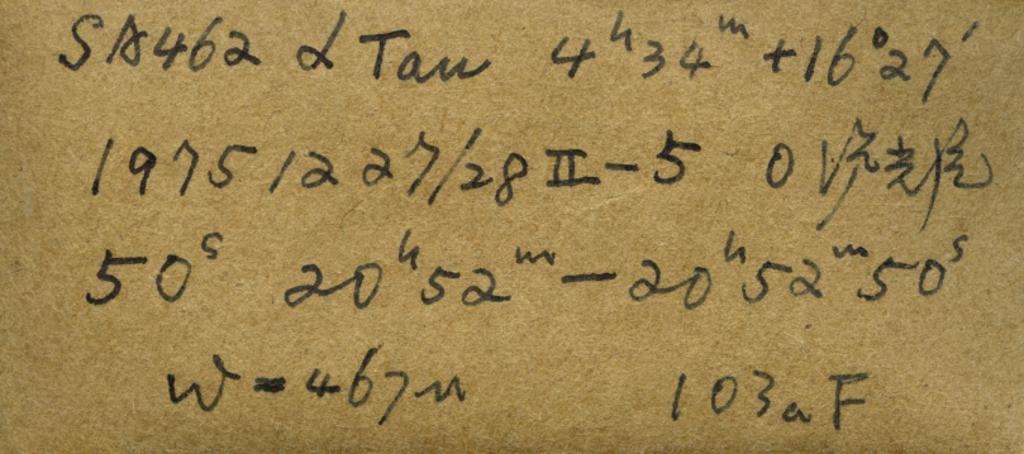 SA462 α Tau 4ʰ34ᵐ +16°27′
1975 12 27/28 II-5 0
50ˢ 20ʰ52ᵐ-20ʰ52ᵐ50ˢ
W=467μ 103aF